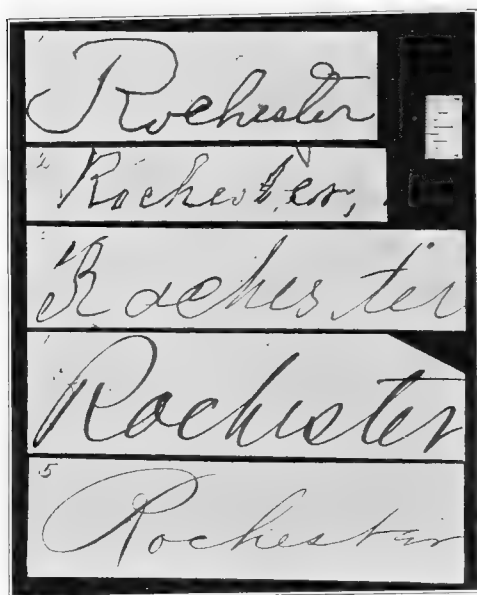 1 Rochester
2 Rochester,
Rochester
Rochester
5 Rochester